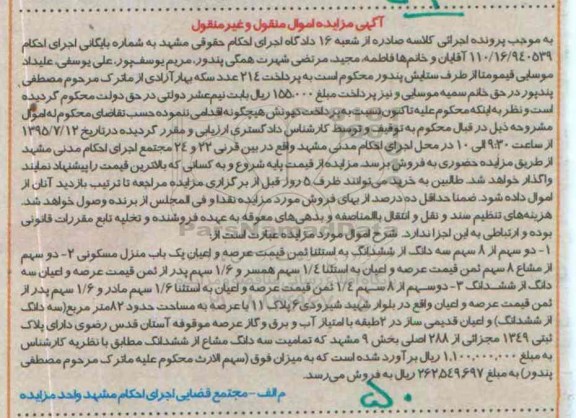 آگهی مزایده اموال منقول و غیر منقول
به موجب پرونده اجرائی کلاسه صادره از شعبه ۱۶ دادگاه اجرای احکام حقوقی مشهد به شماره بایگانی اجرای احکام
۱۱۰/۱۶/۹۴۰۵۳۹ آقایان و خانم‌ها فاطمه، مجید، مرتضی شهرت همگی پندور، مریم یوسف‌پور، علی یوسفی، علیداد
موسایی قیمومتا از طرف ستایش پندور محکوم است به پرداخت ۲۱۴ عدد سکه بهار آزادی از ماترک مرحوم مصطفی
پندپور در حق خانم سمیه موسایی و نیز پرداخت مبلغ ۱۵۵.۰۰۰ ریال بابت نیم عشر دولتی در حق دولت محکوم گردیده
است و نظر به اینکه محکوم علیه تاکنون نسبت به پرداخت بدهی‌اش هیچگونه اقدامی ننموده حسب تقاضای محکوم له اموال
مشروحه ذیل در قبال محکوم به توقیف و توسط کارشناس دادگستری ارزیابی و مقرر گردیده در تاریخ ۱۳۹۵/۷/۱۲
از ساعت ۹:۳۰ الی ۱۰ در محل اجرای احکام مدنی مشهد واقع در بین قرنی ۲۲ و ۲۴ مجتمع اجرای احکام مدنی مشهد
از طریق مزایده حضوری به فروش برسد. مزایده از قیمت پایه شروع و به کسانی که بالاترین قیمت را پیشنهاد نمایند
واگذار خواهد شد. طالبین به خرید می‌توانند ظرف ۵ روز قبل از برگزاری مزایده مراجعه تا ترتیب بازدید آنان از
اموال داده شود. ضمنا حداقل ده درصد از بهای فروش مورد مزایده نقدا و فی المجلس از برنده وصول خواهد شد.
هزینه‌های تنظیم سند و نقل و انتقال بالمناصفه و بدهی‌های معوقه به عهده فروشنده و تخلیه تابع مقررات قانونی
بوده و ارتباطی به این اجرا ندارد. شرح اموال مورد مزایده عبارت است از:
۱- دو سهم از ۸ سهم سه دانگ از ششدانگ به استثنا ثمن قیمت عرصه و اعیان یک باب منزل مسکونی ۲- دو سهم
از مشاع ۸ سهم ثمن قیمت عرصه و اعیان به استثنا ۱/۴ سهم همسر و ۱/۶ سهم پدر از ثمن قیمت عرصه و اعیان سه
دانگ از ششدانگ ۳- دو سهم از ۸ سهم ۱/۴ ثمن قیمت عرصه و اعیان به استثنا ۱/۶ سهم مادر و ۱/۶ سهم پدر از
ثمن قیمت عرصه و اعیان واقع در بلوار شهید شیرودی ۶ پلاک ۱۱ با عرصه به مساحت حدود ۸۲ متر مربع (سه دانگ
از ششدانگ) و اعیان قدیمی ساز در ۲ طبقه با امتیاز آب و برق و گاز عرصه موقوفه آستان قدس رضوی دارای پلاک
ثبتی ۱۳۴۹ مجزائی از ۲۸۸ اصلی بخش ۹ مشهد که تمامیت سه دانگ مشاع از ششدانگ مطابق با نظریه کارشناس
به مبلغ ۱.۱۰۰.۰۰۰.۰۰۰ ریال برآورد شده است که به میزان فوق (سهم الارث محکوم علیه ماترک مرحوم مصطفی
پندور) به مبلغ ۳۶۲.۵۴۹.۶۹۷ ریال به فروش می‌رسد.
م الف - مجتمع قضایی اجرای احکام مشهد واحد مزایده